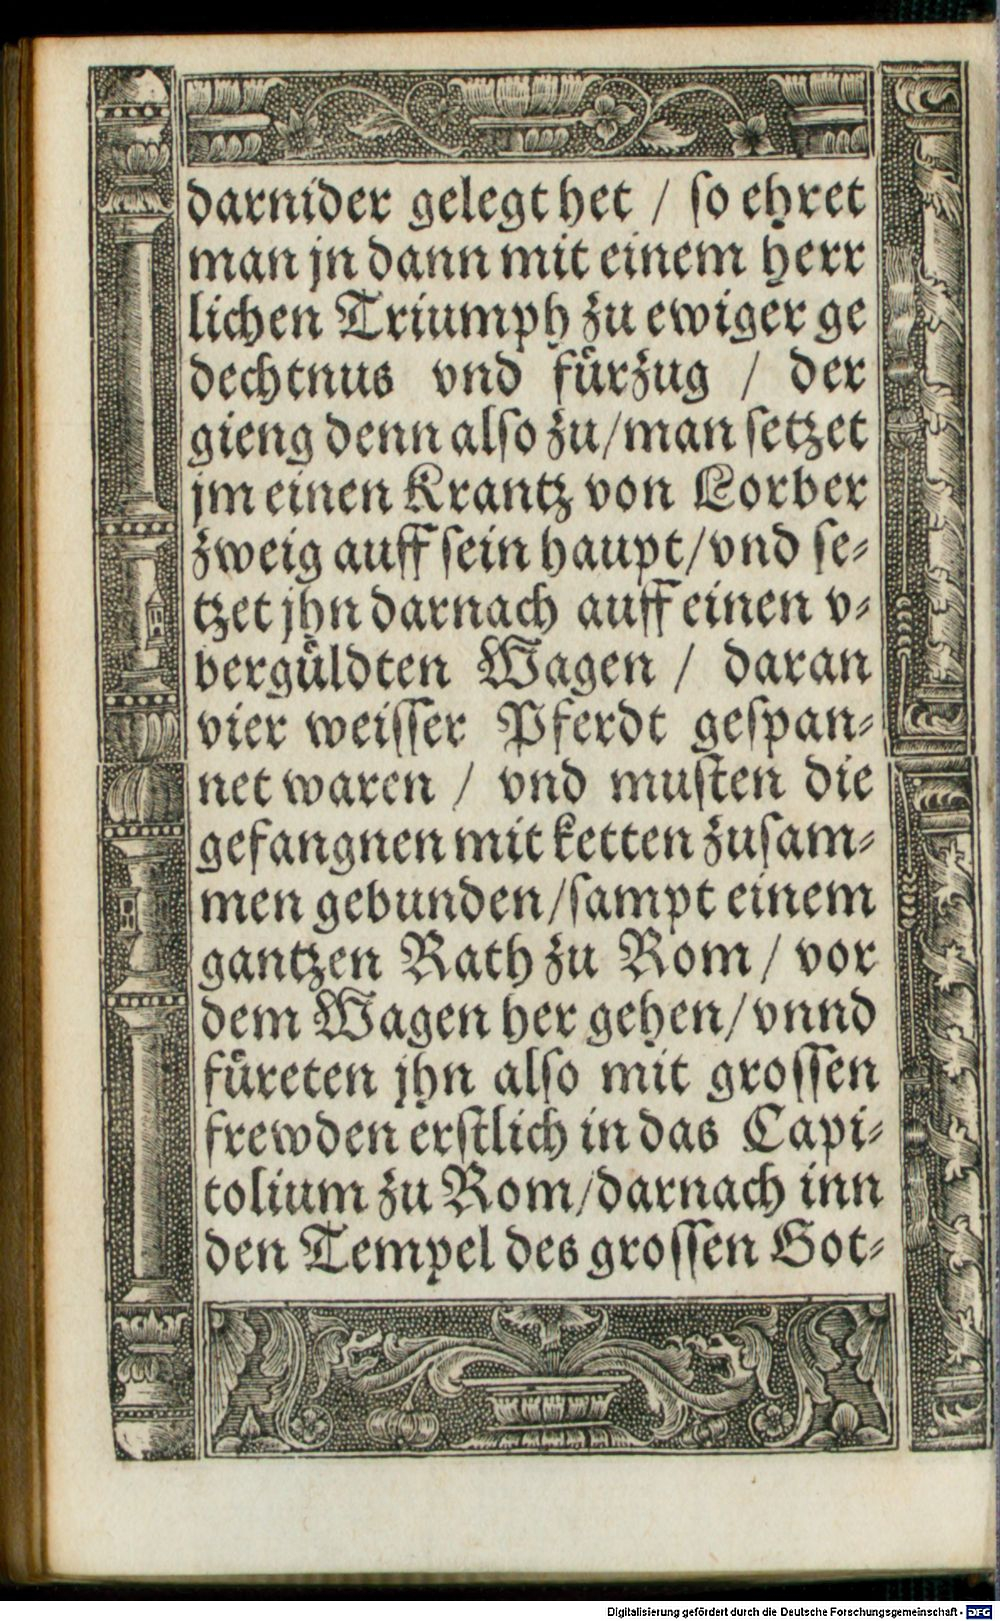 darnider gelegt het / so ehret
man jn dann mit einem herr
lichen Triumph zu ewiger ge
dechtnus vnd fürzug / der
gieng denn also zu/man setzet
jm einen Krantz von Lorber
zweig auff sein haupt/vnd se-
tzet jhn darnach auff einen v-
bergüldten Wagen / daran
vier weisser Pferdt gespan-
net waren / vnd musten die
gefangnen mit ketten zusam-
men gebunden/sampt einem
gantzen Rath zu Rom / vor
dem Wagen her gehen/vnnd
füreten jhn also mit grossen
frewden erstlich in das Capi-
tolium zu Rom/darnach inn
den Tempel des grossen Got-
Digitalisierung gefördert durch die Deutsche Forschungsgemeinschaft - DFG